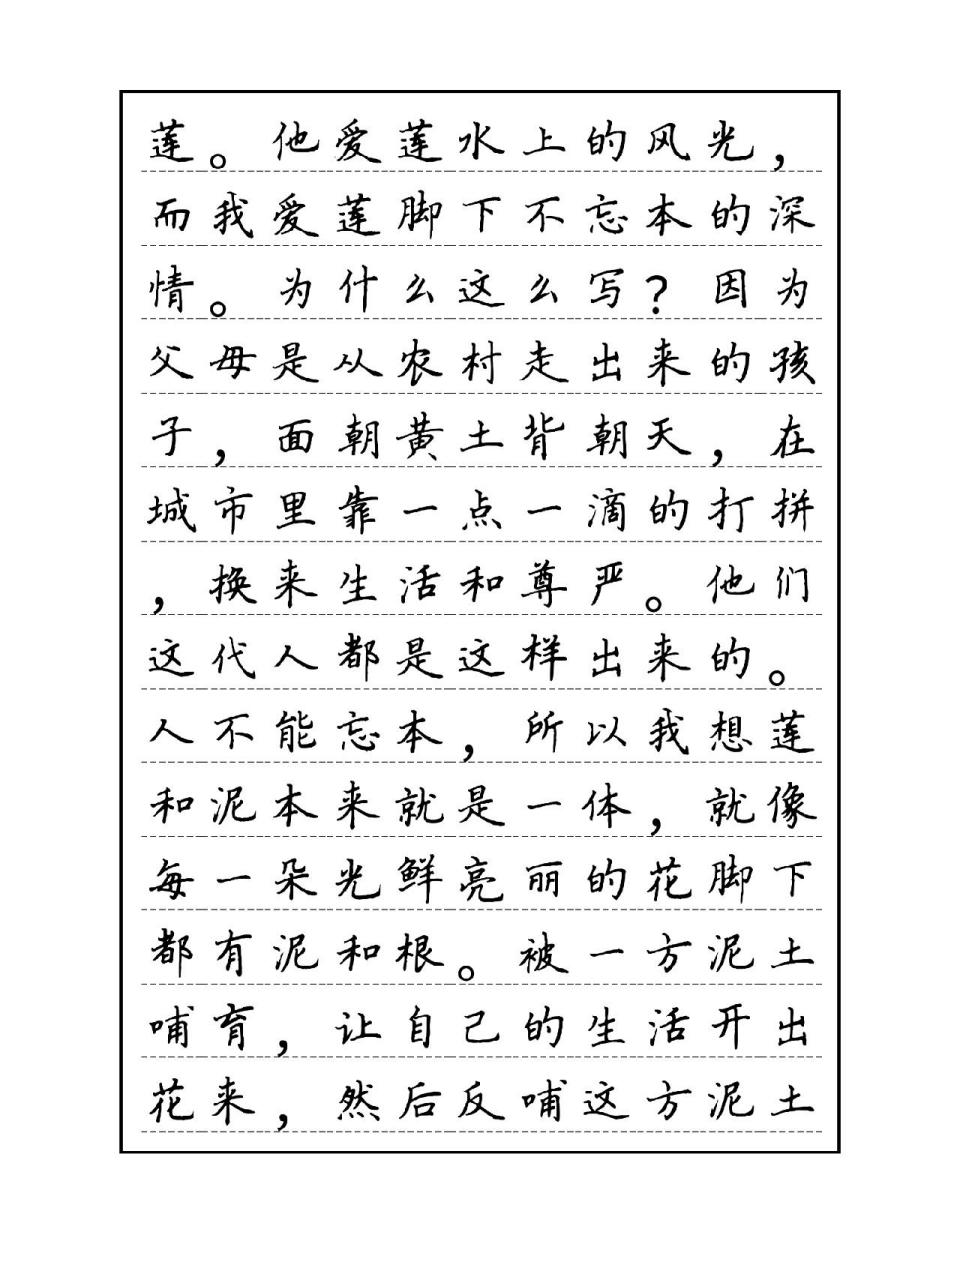 莲。他爱莲水上的风光，
而我爱莲脚下不忘本的深
情。为什么这么写？因为
父母是从农村走出来的孩
子，面朝黄土背朝天，在
城市里靠一点一滴的打拼
，换来生活和尊严。他们
这代人都是这样出来的。
人不能忘本，所以我想莲
和泥本来就是一体，就像
每一朵光鲜亮丽的花脚下
都有泥和根。被一方泥土
哺育，让自己的生活开出
花来，然后反哺这方泥土